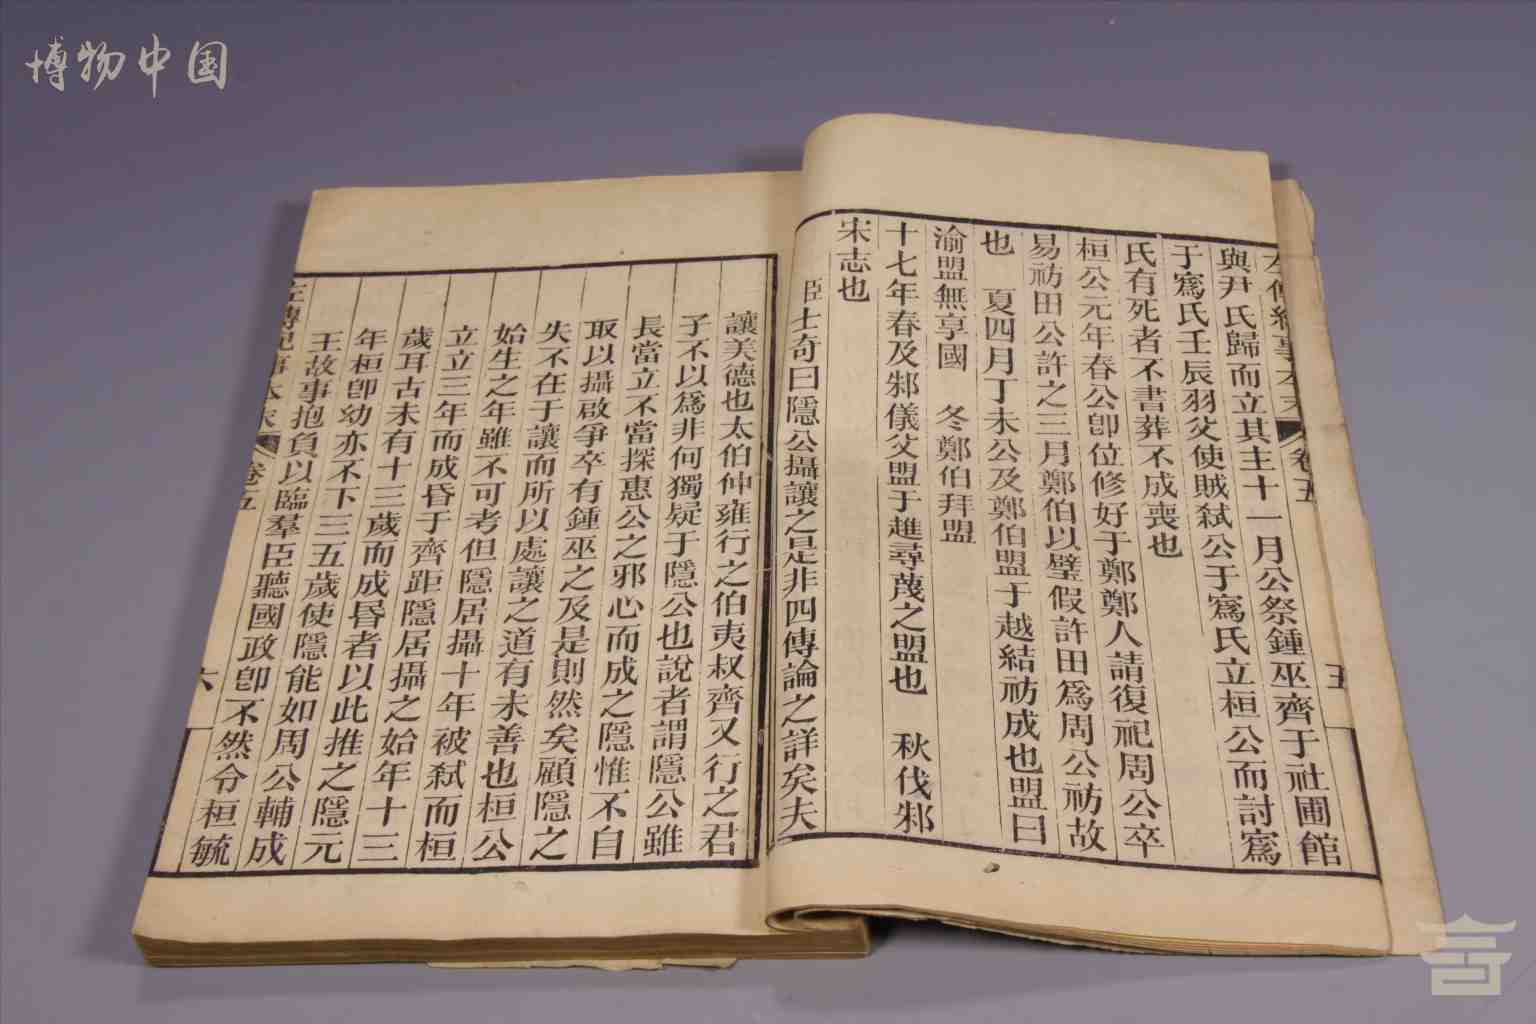 博物中国
左傳紀事本末 卷五 五
與尹氏歸而立其主十一月公祭鍾巫齊于社圃館
于寪氏壬辰羽父使賊弑公于寪氏立桓公而討寪
氏有死者不書葬不成喪也
桓公元年春公卽位修好于鄭鄭人請復祀周公卒
易祊田公許之三月鄭伯以璧假許田爲周公祊故
也 夏四月丁未公及鄭伯盟于越結祊成也盟曰
渝盟無享國 冬鄭伯拜盟
十七年春及邾儀父盟于趡尋蔑之盟也 秋伐邾
宋志也
臣士奇曰隱公攝讓之是非四傳論之詳矣夫
讓美德也太伯仲雍行之伯夷叔齊又行之君
子不以爲非何獨疑于隱公也說者謂隱公雖
長當立不當探惠公之邪心而成之隱惟不自
取以攝啟爭卒有鍾巫之及是則然矣顧隱之
失不在于讓而所以處讓之道有未善也桓公
始生之年雖不可考但隱居攝十年被弑而桓
立立三年而成昏于齊距隱居攝之始年十三
歲耳古未有十三歲而成昬者以此推之隱元
年桓卽幼亦不下三五歲使隱能如周公輔成
王故事抱負以臨羣臣聽國政卽不然令桓毓
左傳紀事本末 卷五 六